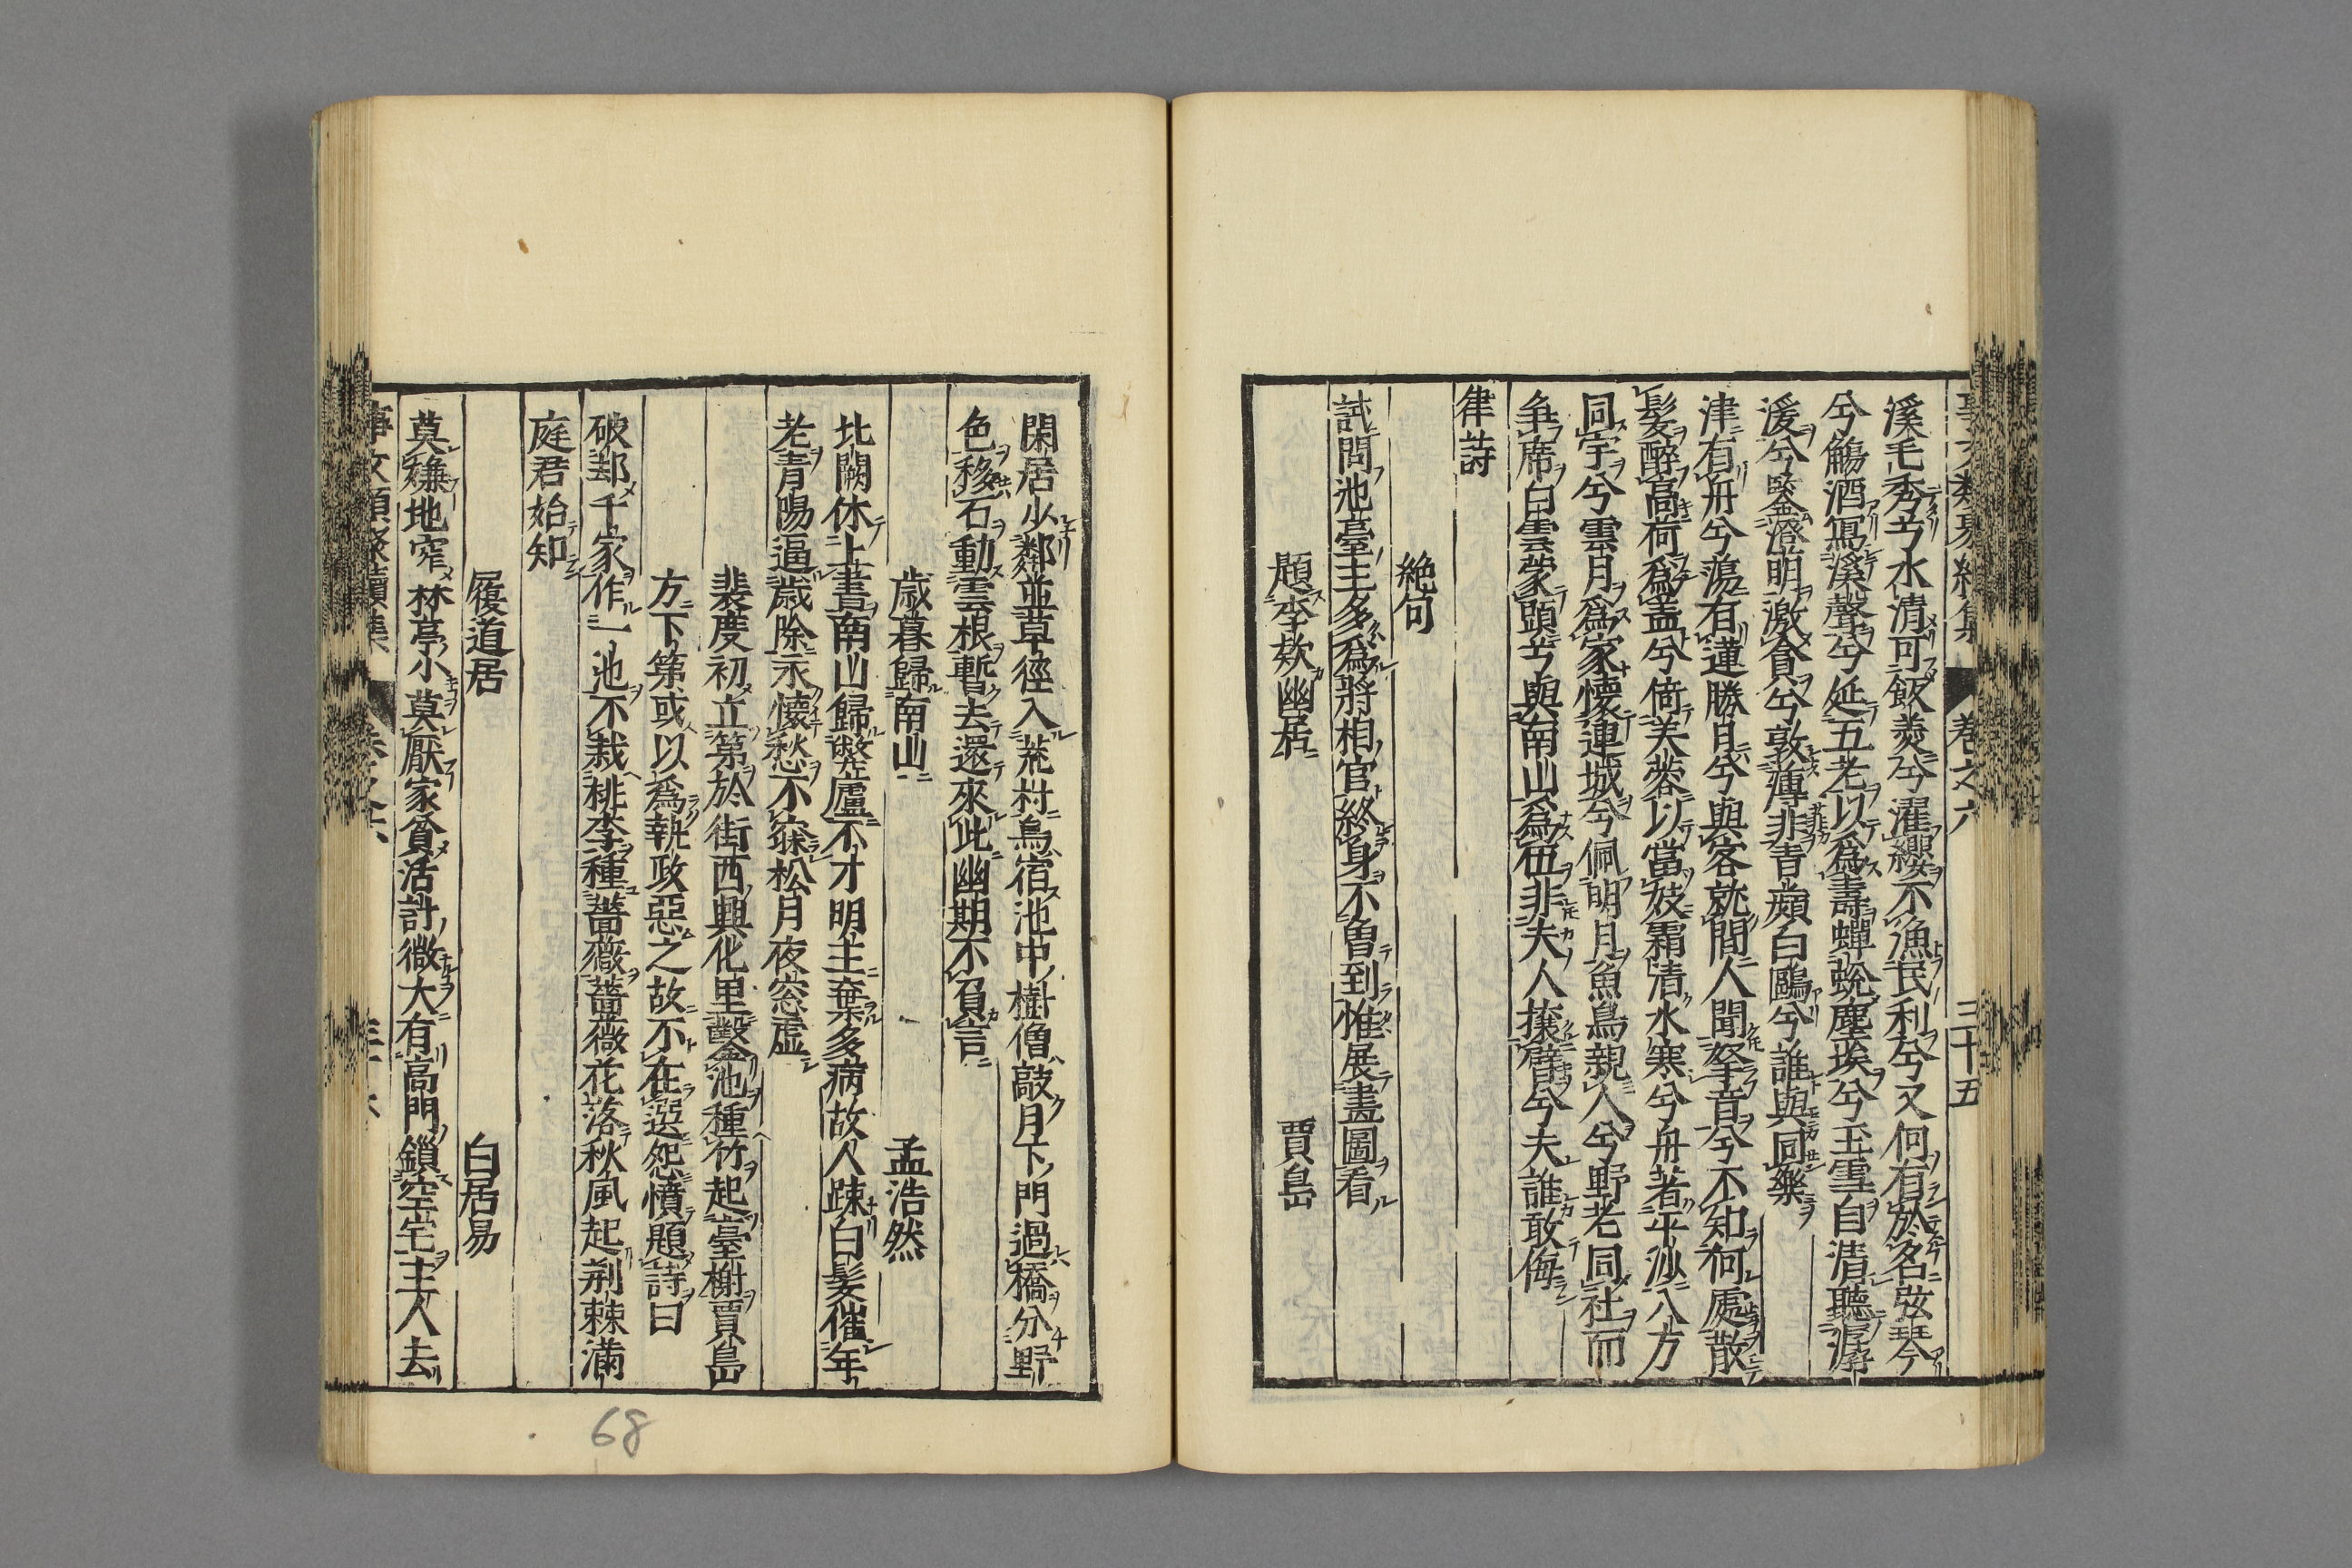 溪毛秀兮水清可飯羹兮濯纓不漁民利兮又何有於名弦琴
兮觴酒寫溪聲兮延五老以爲壽蟬蛻塵埃兮玉雪自清聽潺
湲兮鑒澄明激貪兮敦薄非青蘋白鷗兮誰與同樂
津有舟兮蕩有蓮勝日兮與客就間人聞拏音兮不知何處散
髮醉高荷爲盖兮倚芙蓉以當妓霜清水寒兮舟著平沙八方
同宇兮雲月爲家懷連城兮佩明月魚鳥親人兮野老同社而
争席白雲蒙頭兮與南山爲伍非夫人攘臂兮夫誰敢侮
律詩
絶句
試問池臺主多爲將相官終身不曽到惟展畫圖看
題李欵幽居
賈島
閑居少鄰並草徑入荒村鳥宿池中樹僧敲月下門過橋分野
色移石動雲根暫去還來此幽期不負言
歳暮歸南山
孟浩然
北闕休上書南山歸弊廬不才明主棄多病故人踈白髮催年
老青陽逼歳除永懷愁不寐松月夜窓虚
裴度初立第於街西興化里鑿池種竹起臺榭賈島
方下第或以爲執政惡之故不在選怨憤題詩曰
破却千家作一池不栽桃李種薔薇薔薇花落秋風起荊棘滿
庭君始知
履道居
白居易
莫嫌地窄林亭小莫厭家貧活計微大有高門鎖空宅主人去
68